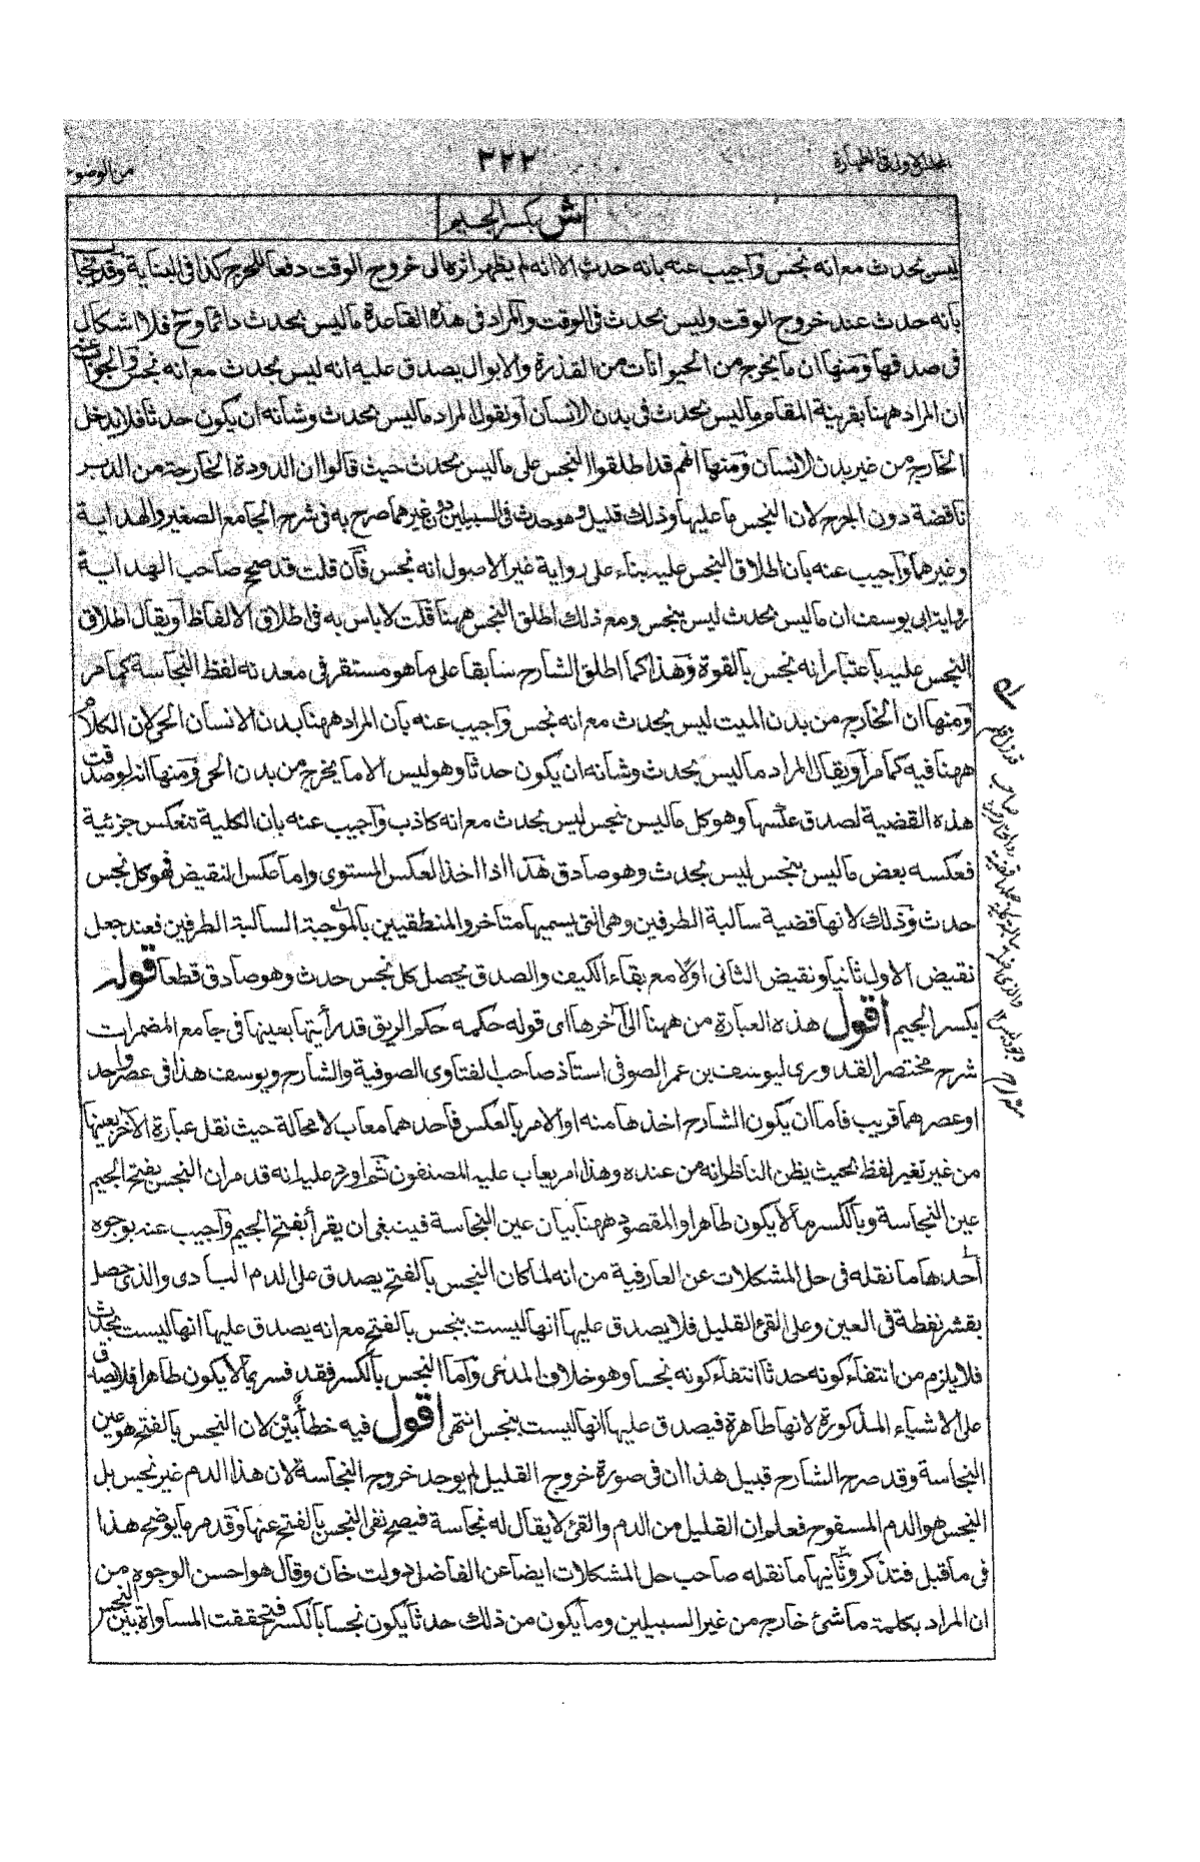 المجلد الاول فى الطهارة ٣٢٢ من الوضوء
ش بكسر الجيم
ليس بحدث مع انه نجس وآجيب عنه بانه حدث الا انه لم يظهر اثره الى خروج الوقت دفعا للحرج كذا فى البناية وقد يجاب
بانه حدث عند خروج الوقت وليس بحدث فى الوقت والمراد فى هذه القاعدة ما ليس بحدث دائما وح فلا اشكال
فى صدقها ومنها ان ما يخرج من الحيوانات من القذرة والابوال يصدق عليه انه ليس بحدث مع انه نجس والجواب عنه
ان المراد ههنا بقرينة المقام ما ليس بحدث فى بدن الانسان او نقول المراد ما ليس بحدث وشأنه ان يكون حدثا فلا يدخل
الخارج من غير بدن الانسان ومنها انهم قد اطلقوا النجس على ما ليس بحدث حيث قالوا ان الدودة الخارجة من الدبر
ناقضة دون الجرح لان النجس ما عليها وذلك قليل وهو حدث فى السبيلين دون غيرهما صرح به فى شرح الجامع الصغير والهداية
وغيرهما وآجيب عنه بان اطلاق النجس عليه بناء على رواية غير الاصول انه نجس فان قلت قد صحح صاحب الهداية
رواية ابى يوسف ان ما ليس بحدث ليس بنجس ومع ذلك اطلق النجس ههنا قلت لا باس به فى اطلاق الالفاظ او يقال اطلاق
النجس عليه باعتبار انه نجس بالقوة وهذا كما اطلق الشارح سابقا على ما هو مستقر فى معدنه لفظ النجاسة كما مر
ومنها ان الخارج من بدن الميت ليس بحدث مع انه نجس وآجيب عنه بان المراد ههنا بدن الانسان الحى لان الكلام
ههنا فيه كما مر او يقال المراد ما ليس بحدث وشأنه ان يكون حدثا وهو ليس الا ما يخرج من بدن الحى ومنها انه لو صدقت
هذه القضية لصدق عكسها وهو كل ما ليس بنجس ليس بحدث مع انه كاذب وآجيب عنه بان الكلية تنعكس جزئية
فعكسه بعض ما ليس بنجس ليس بحدث وهو صادق هذا اذا اخذ العكس المستوى واما عكس النقيض فهو كل نجس
حدث وذلك لانها قضية سالبة الطرفين وهى التى يسميها متاخرو المنطقيين بالموجبة السالبة الطرفين فعند جعل
نقيض الاول ثانيا ونقيض الثانى اولا مع بقاء الكيف والصدق يحصل كل نجس حدث وهو صادق قطعا قوله
بكسر الجيم اقول هذه العبارة من ههنا الى آخرها اى قوله حكمه حكم الريق قد رأيتها بعينها فى جامع المضمرات
شرح مختصر القدورى ليوسف بن عمر الصوفى استاذ صاحب الفتاوى الصوفية والشارح ويوسف هذا فى عصر واحد
او عصرهما قريب فاما ان يكون الشارح اخذها منه او الامر بالعكس فاحدهما معاب لا محالة حيث نقل عبارة الآخر بعينها
من غير تغير لفظ بحيث يظن الناظر انه من عنده وهذا امر يعاب عليه المصنفون ثم اورد عليه انه قد مر ان النجس بفتح الجيم
عين النجاسة وبالكسر ما لا يكون طاهرا والمقصود ههنا بيان عين النجاسة فينبغى ان يقرأ بفتح الجيم وآجيب عنه بوجوه
احدها ما نقله فى حل المشكلات عن العارفية من انه لما كان النجس بالفتح يصدق على الدم البادى والذى حصل
بقشر نفطة فى العين وعلى القئ القليل فلا يصدق عليها انها ليست بنجس بالفتح مع انه يصدق عليها انها ليست بحدث
فلا يلزم من انتفاء كونه حدثا انتفاء كونه نجسا وهو خلاف المدعى واما النجس بالكسر فقد فسر بما لا يكون طاهرا فلا يصدق
على الاشياء المذكورة لانها طاهرة فيصدق عليها انها ليست بنجس انتهى اقول فيه خطأ بين لان النجس بالفتح هو عين
النجاسة وقد صرح الشارح قبيل هذا ان فى صورة خروج القليل لم يوجد خروج النجاسة لان هذا الدم غير نجس بل
النجس هو الدم المسفوح فعلم ان القليل من الدم والقئ لا يقال له نجاسة فيصح نفى النجس بالفتح عنها وقد مر ما يوضح هذا
فى ما قبل فتذكر وثانيها ما نقله صاحب حل المشكلات ايضا عن الفاضل دولت خان وقال هو احسن الوجوه من
ان المراد بكلمة ما شئ خارج من غير السبيلين وما يكون من ذلك حدثا يكون نجسا بالكسر فتحققت المساواة بين النجس